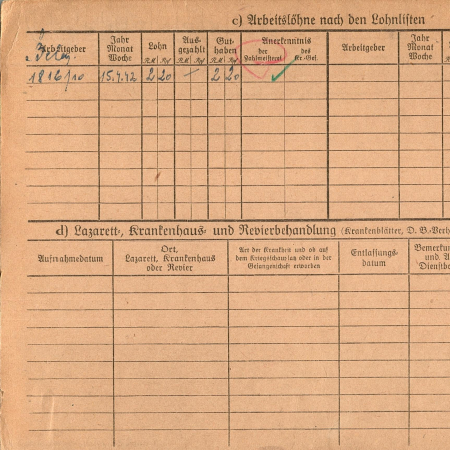 c) Arbeitslöhne nach den Lohnlisten
Arbeitgeber Jahr Monat Woche Lohn Ausgezahlt Guthaben Anerkenntnis Arbeitgeber Jahr Monat Woche
RM Rpf RM Rpf RM Rpf der Zahlmeisterei des Kr.-Gef.
1816/10 15.4.42 2 20 — 2 20
d) Lazarett-, Krankenhaus- und Revierbehandlung (Krankenblätter, D. B.-Verh
Aufnahmedatum Ort, Lazarett, Krankenhaus oder Revier Art der Krankheit und ob auf dem Kriegsschauplatz oder in der Gefangenschaft erworben Entlassungsdatum Bemerku und A Dienstb